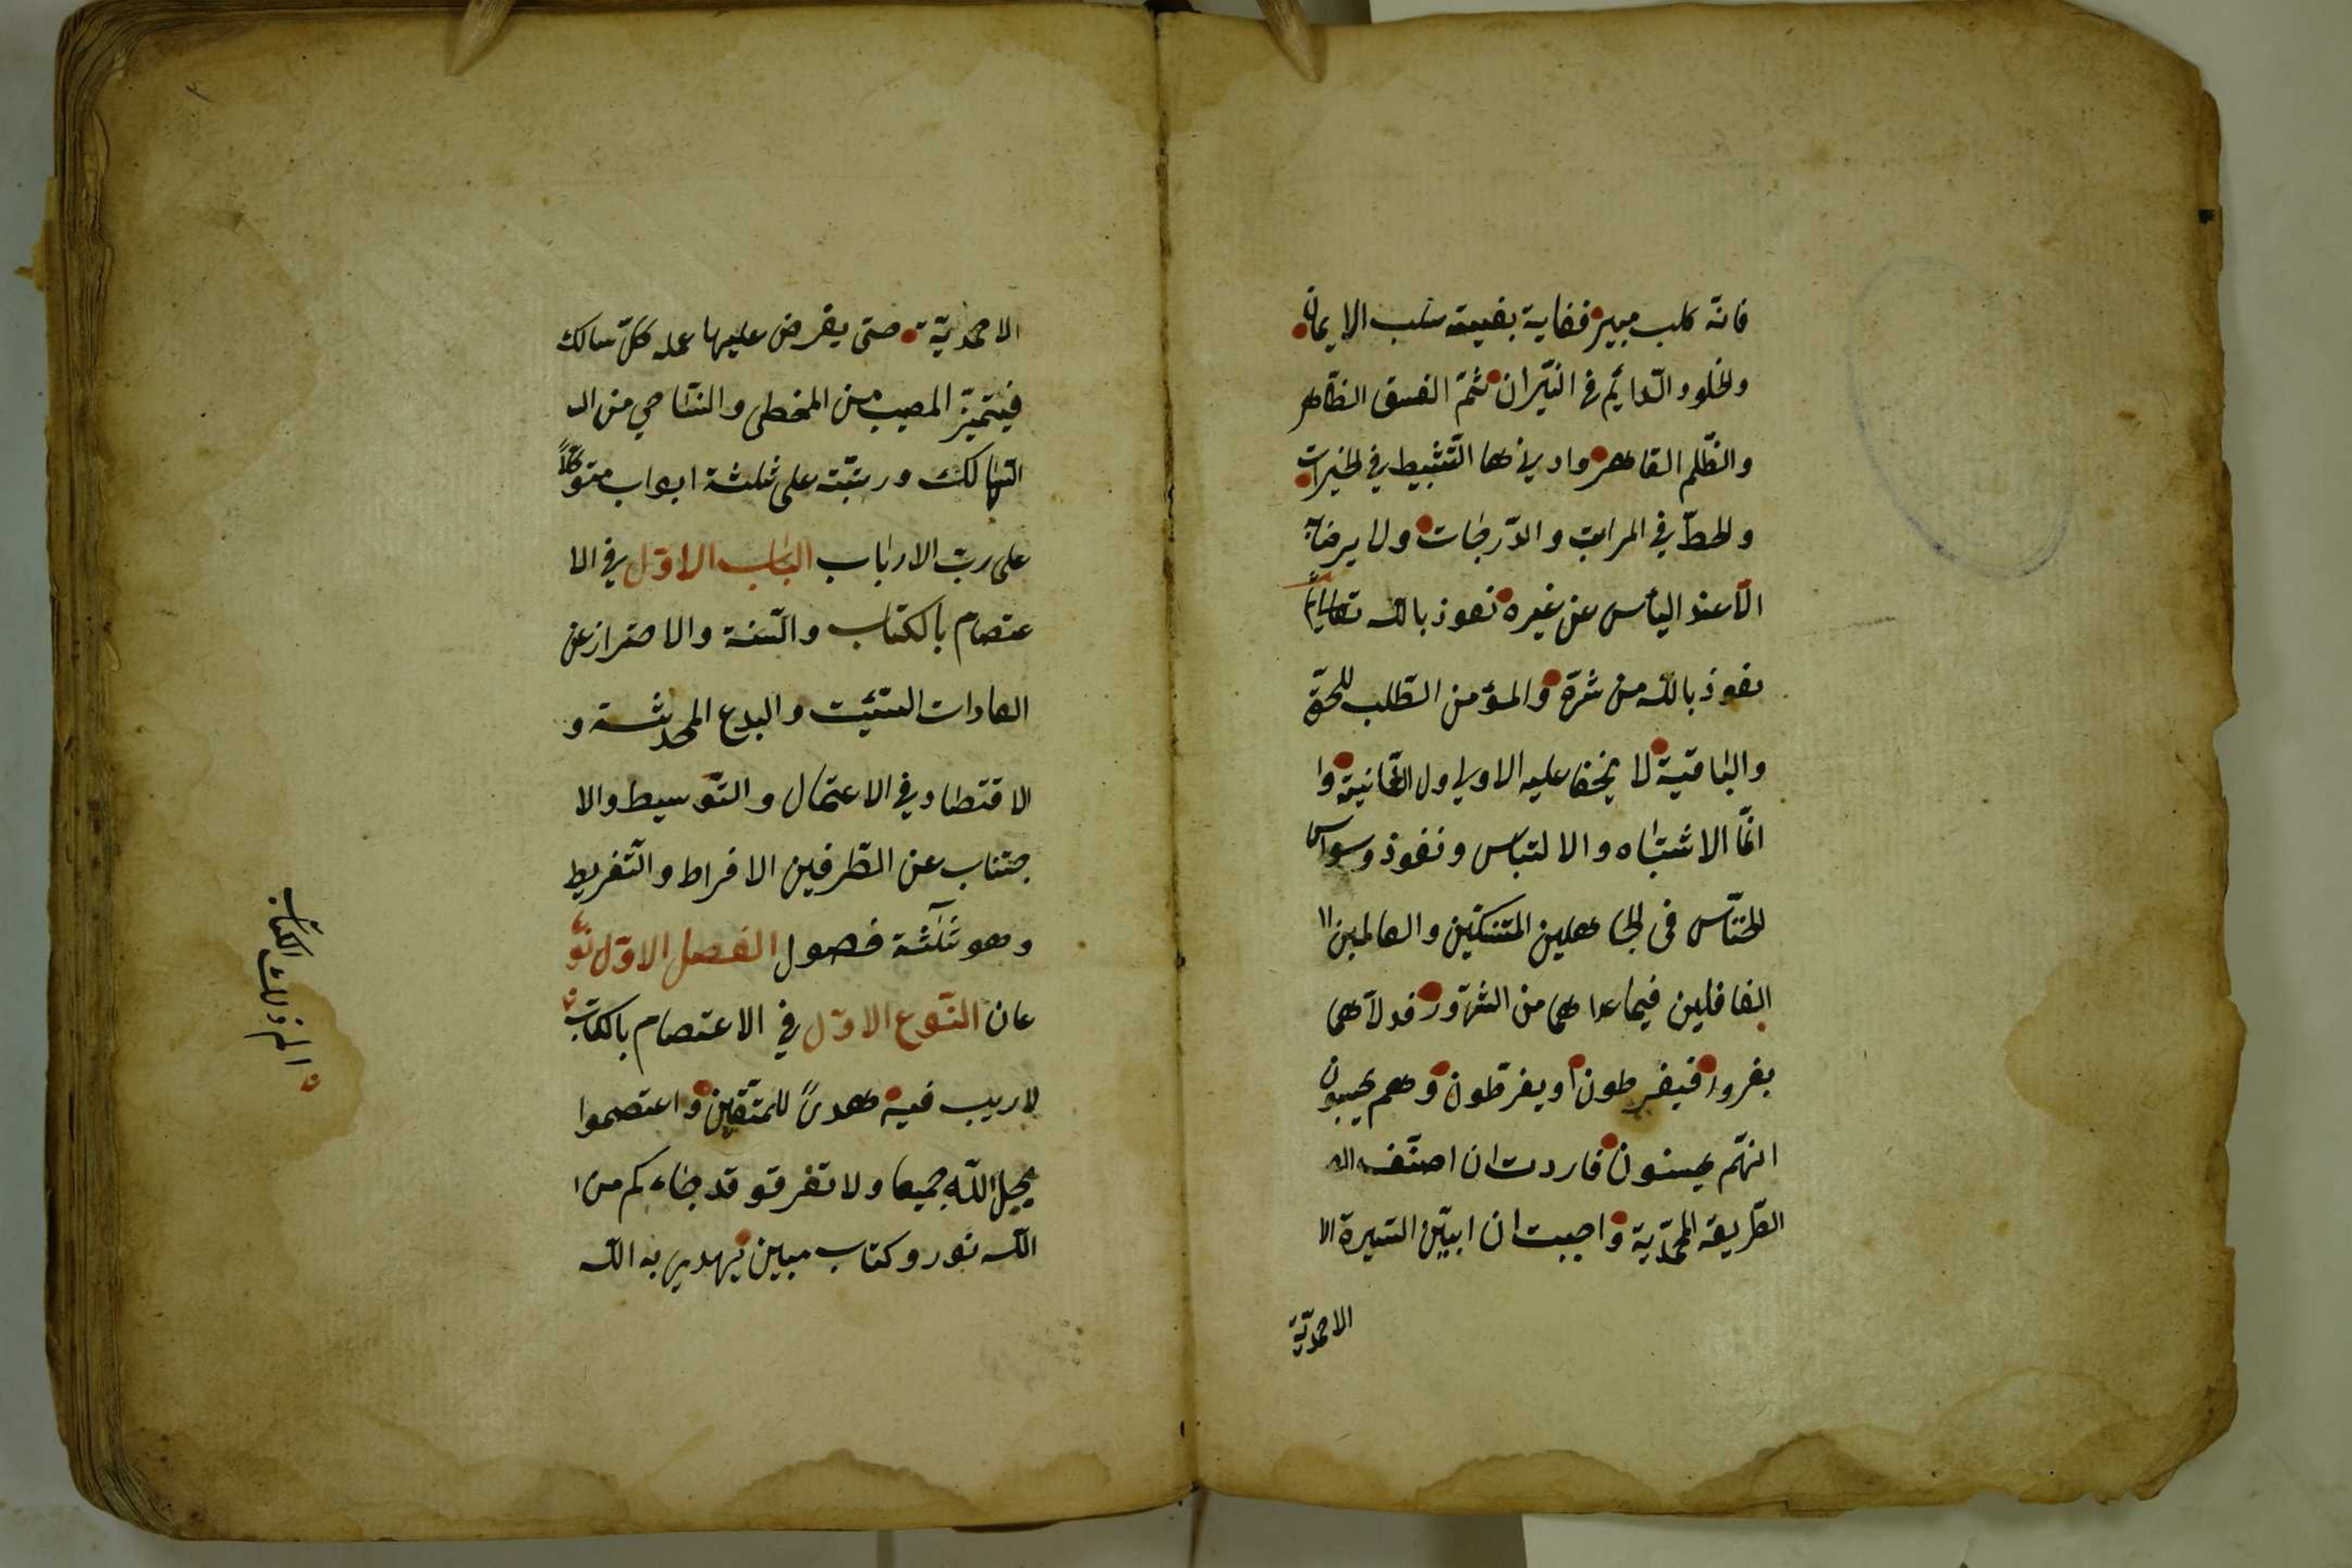 فانه كلب مبير فغاية بغيته سلب الايمان
ولخلود الدايم في النيران ثم الفسق الظاهر
والظلم القاهر وادينها التثبيط في لخيرات
ولحط في المراتب والدرجات ولا يرضا به
الا عند اليأس عن غيره نعوذ بالله تعالى
نعوذ بالله من شره والمؤمن الطلب للحق
والباقية لا يخفا عليه الاولى ول الثانية وا
انما الاشتباه والالتباس ونفوذ وسواس
لخناس في لجاهلين المتنسكين والعالمين ا
الغافلين فيما عداهما من الشرور فدلاهما
بغرور فيفرطون او يفرطون وهم يحسبون
انهم يحسنون فاردت ان اصنف ال
الطريقة المحمدية واحببت ان ابين السيرة الا
الاحمدية
الاحمدية حتى يعرض عليها عمله كل سالك
فيتميز المصيب من المخطى والناجي من ال
الهالك ورتبته على ثلثة ابواب متوكلاً
على رب الارباب الباب الاول في الا
عتصام بالكتاب والسنة والاحتراز عن
العادات السيئت والبدع المحدثة و
الاقتصاد في الاعمال والتوسيط والا
جتناب عن الطرفين الافراط والتفريط
وهو ثلثة فصول الفصل الاول نو
عان النوع الاول في الاعتصام بالكتاب
لا ريب فيه هدىً للمتقين واعتصموا
بحبل الله جميعا ولا تفرقو قد جاءكم من ا
الله نور وكتاب مبين يهدي به الله
الم ذلك الكتاب